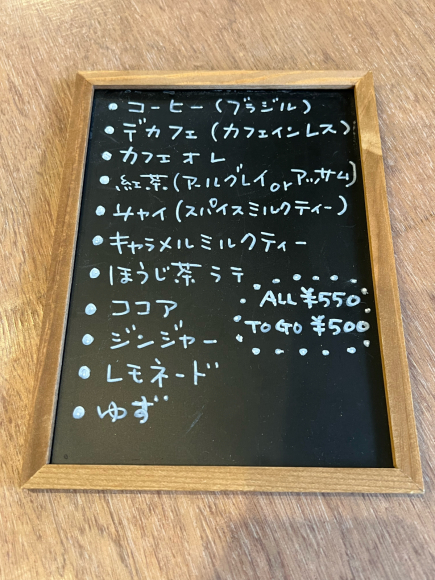 • コーヒー(ブラジル)
• デカフェ(カフェインレス)
• カフェオレ
• 紅茶(アールグレイorアッサム)
• チャイ(スパイスミルクティー)
• キャラメルミルクティー
• ほうじ茶ラテ
• ココア
• ジンジャー
• レモネード
• ゆず
ALL ¥550
TO GO ¥500